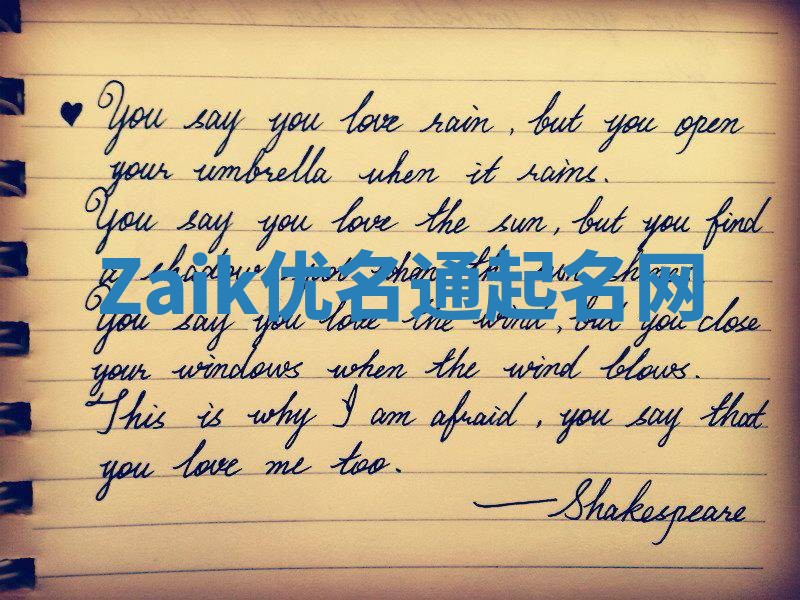 ♥ You say you love rain, but you open
your umbrella when it rains.
You say you love the sun, but you find
a shadow spot when the sun shines.
Zaik优名通起名网
You say you love the wind, but you close
your windows when the wind blows.
This is why I am afraid, you say that
you love me too.
—Shakespeare